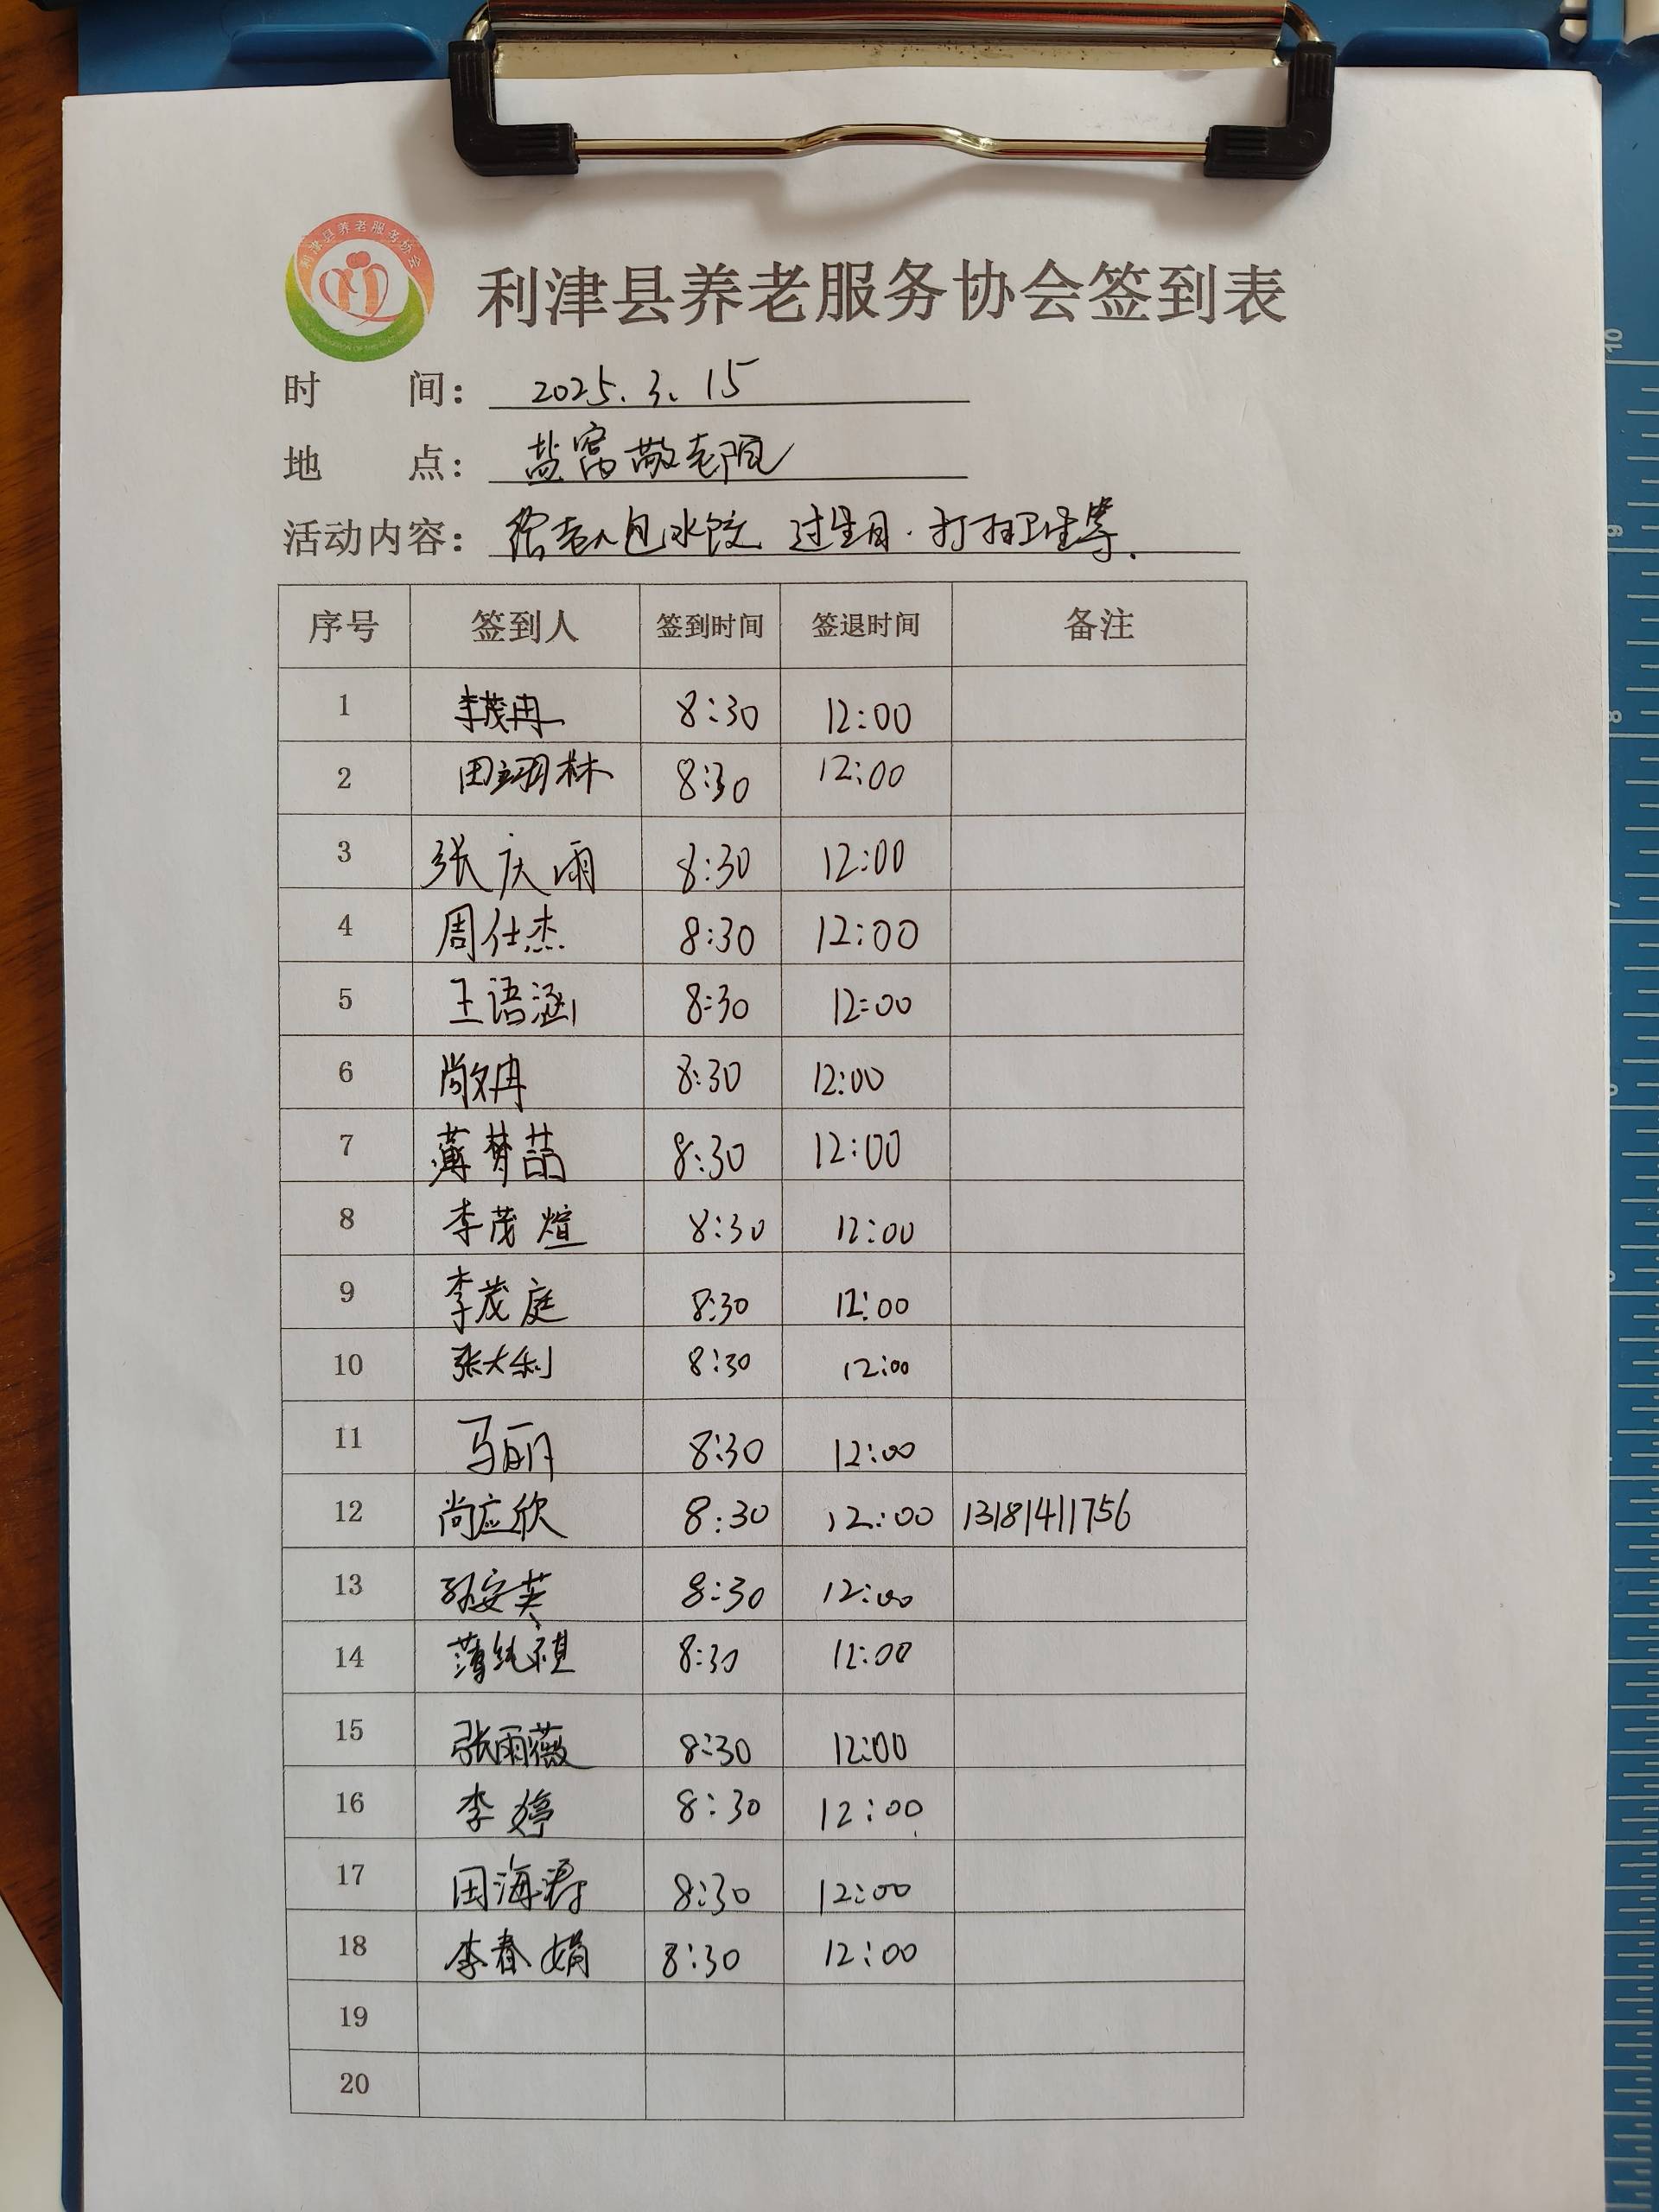 利津县养老服务协会
利津县养老服务协会签到表
时 间： 2025.3.15
地 点： 盐窝敬老院
活动内容： 给老人包水饺 过生日.打扫卫生等.
序号 签到人 签到时间 签退时间 备注
1 李茂冉 8:30 12:00
2 田翊林 8:30 12:00
3 张庆雨 8:30 12:00
4 周仕杰 8:30 12:00
5 王语涵 8:30 12:00
6 尚文冉 8:30 12:00
7 薄梦喆 8:30 12:00
8 李茂煊 8:30 12:00
9 李茂庭 8:30 12:00
10 张大利 8:30 12:00
11 马丽 8:30 12:00
12 尚应欣 8:30 12:00 13181411756
13 孙安芙 8:30 12:00
14 薄纯祺 8:30 12:00
15 张雨薇 8:30 12:00
16 李婷 8:30 12:00
17 田海 8:30 12:00
18 李春娟 8:30 12:00
19
20